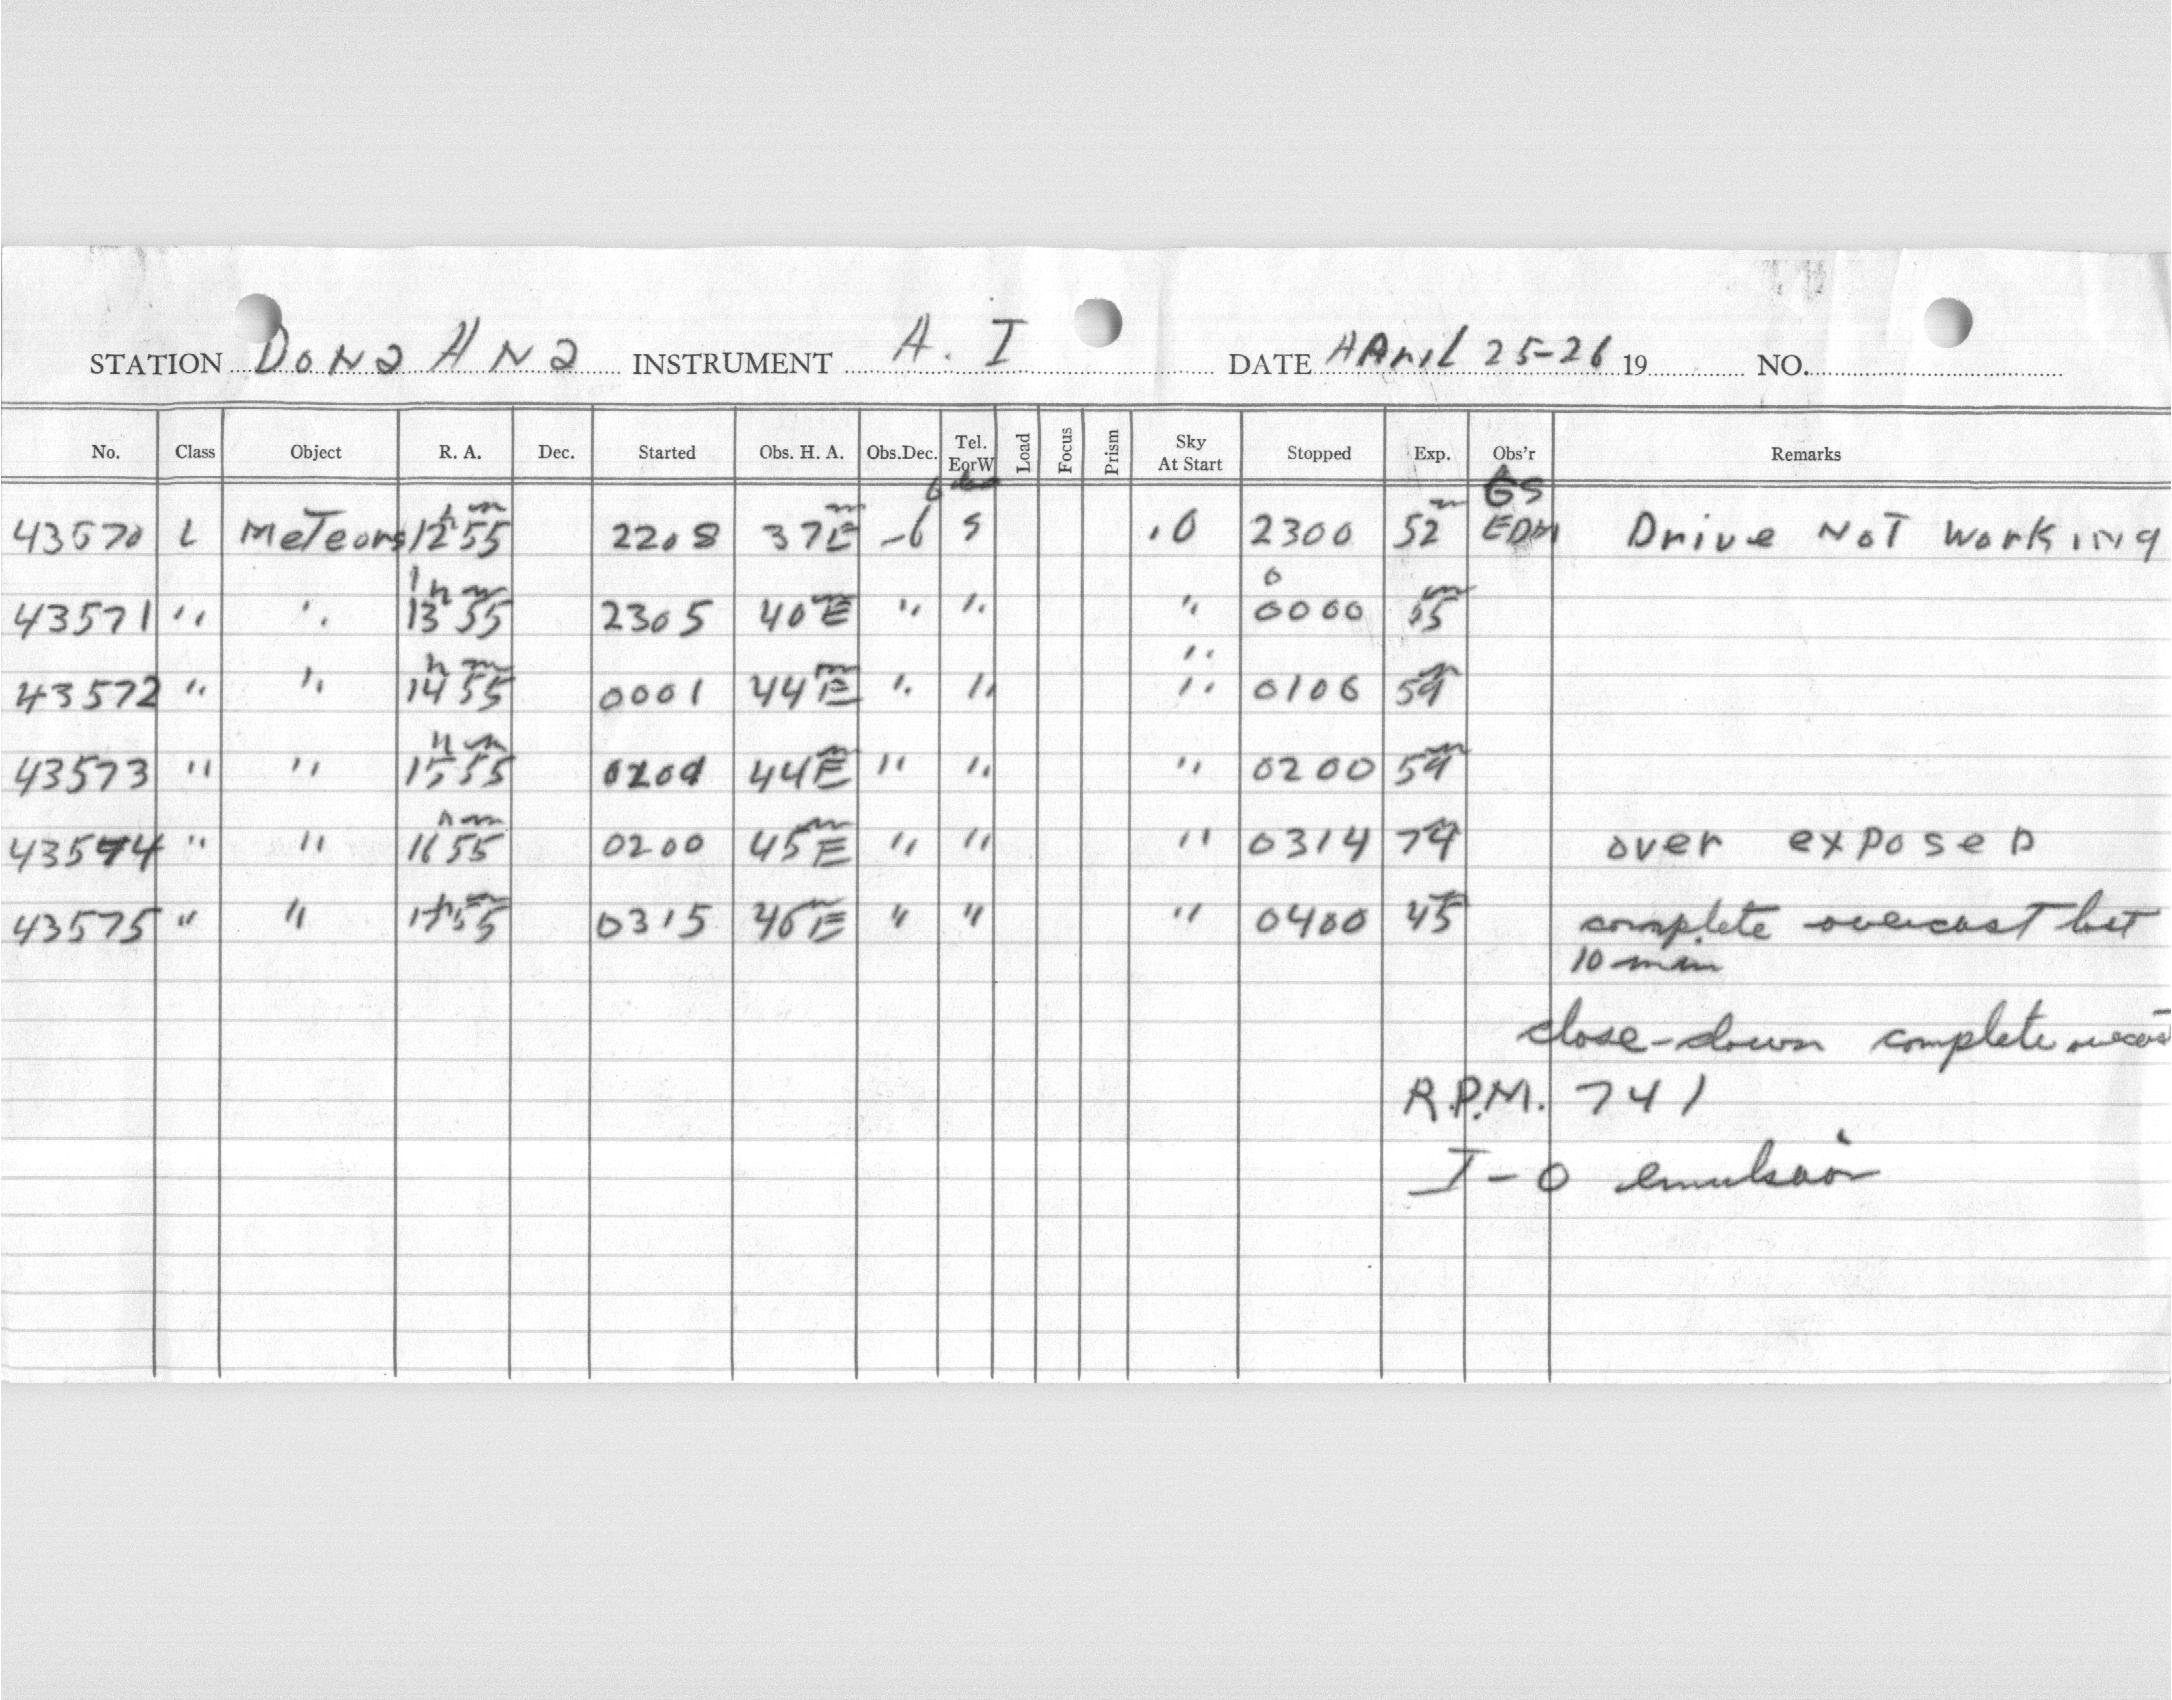 STATION Dona Ana INSTRUMENT A. I DATE April 25-26 19 NO.
No. Class Object R. A. Dec. Started Obs. H. A. Obs.Dec. Tel. EorW Load Focus Prism Sky At Start Stopped Exp. Obs'r Remarks
GS
43570 L Meteors 12h 55m 2208 37m E -6 S .0 2300 52m EDM Drive Not Working
43571 " " 13h 55m 2305 40m E " " " 0000
43572 " " 14h 55m 0001 44m E " " " 0100 59m
43573 " " 15h 55m 44m E " " " 0200 59m
43574 " " 16h 55m 0200 45m E " " " 0314 74m over exposed
43575 " " 17h 55m 0315 46m E " " " 0400 45m complete overcast last
10 min
close-down complete overcast
R.P.M. 741
I-O emulsion